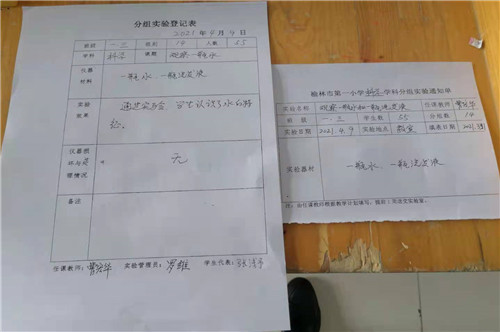 分组实验登记表
2021 年 4 月 9 日
班级 一.三 组别 14 人数 55
学科 科学 课题 观察一瓶水
仪器材料 一瓶水 一瓶洗发液
实验效果 通过实验 学生认识了水的特征。
仪器损坏与赔偿情况 无
备注
任课教师: 曹宏华 实验管理员: 罗雄 学生代表:
榆林市第一小学科学学科分组实验通知单
实验名称 观察一瓶水和一瓶洗发液 任课教师
班级 一.三 学生数 55 分组数 14
实验日期 2021.4.9 实验地点 教室 填表日期
实验器材 一瓶水 一瓶洗发液
注:由任课教师根据教学计划填写,提前